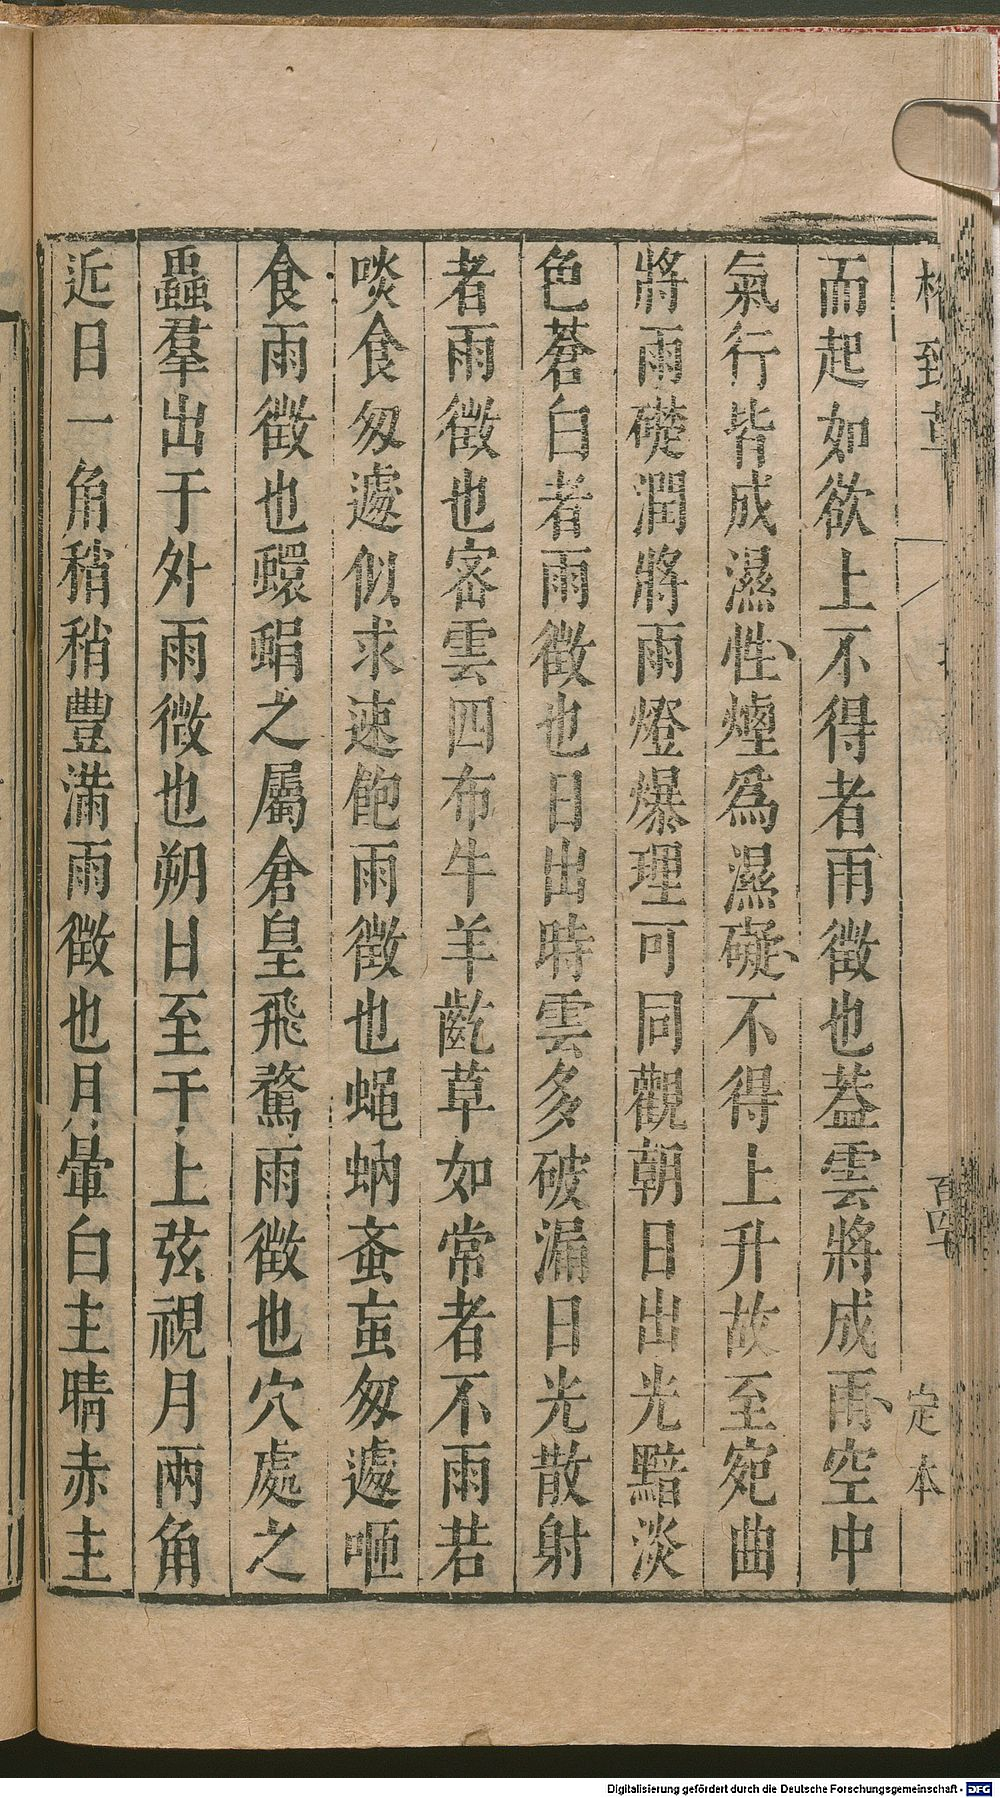 格致草
定本
而起如欲上不得者雨徵也葢雲將成雨空中
氣行皆成濕性煙爲濕礙不得上升故至宛曲
將雨礎潤將雨燈爆理可同觀朝日出光黯淡
色蒼白者雨徵也日出時雲多破漏日光散射
者雨徵也密雲四布牛羊齕草如常者不雨若
啖食匆遽似求速飽雨徵也蠅蚋蚉䖟匆遽咂
食雨徵也蠉蜎之屬倉皇飛騖雨徵也穴處之
蟲羣出于外雨徵也朔日至于上弦視月兩角
近日一角稍稍豐滿雨徵也月暈白主晴赤主
Digitalisierung gefördert durch die Deutsche Forschungsgemeinschaft - DFG